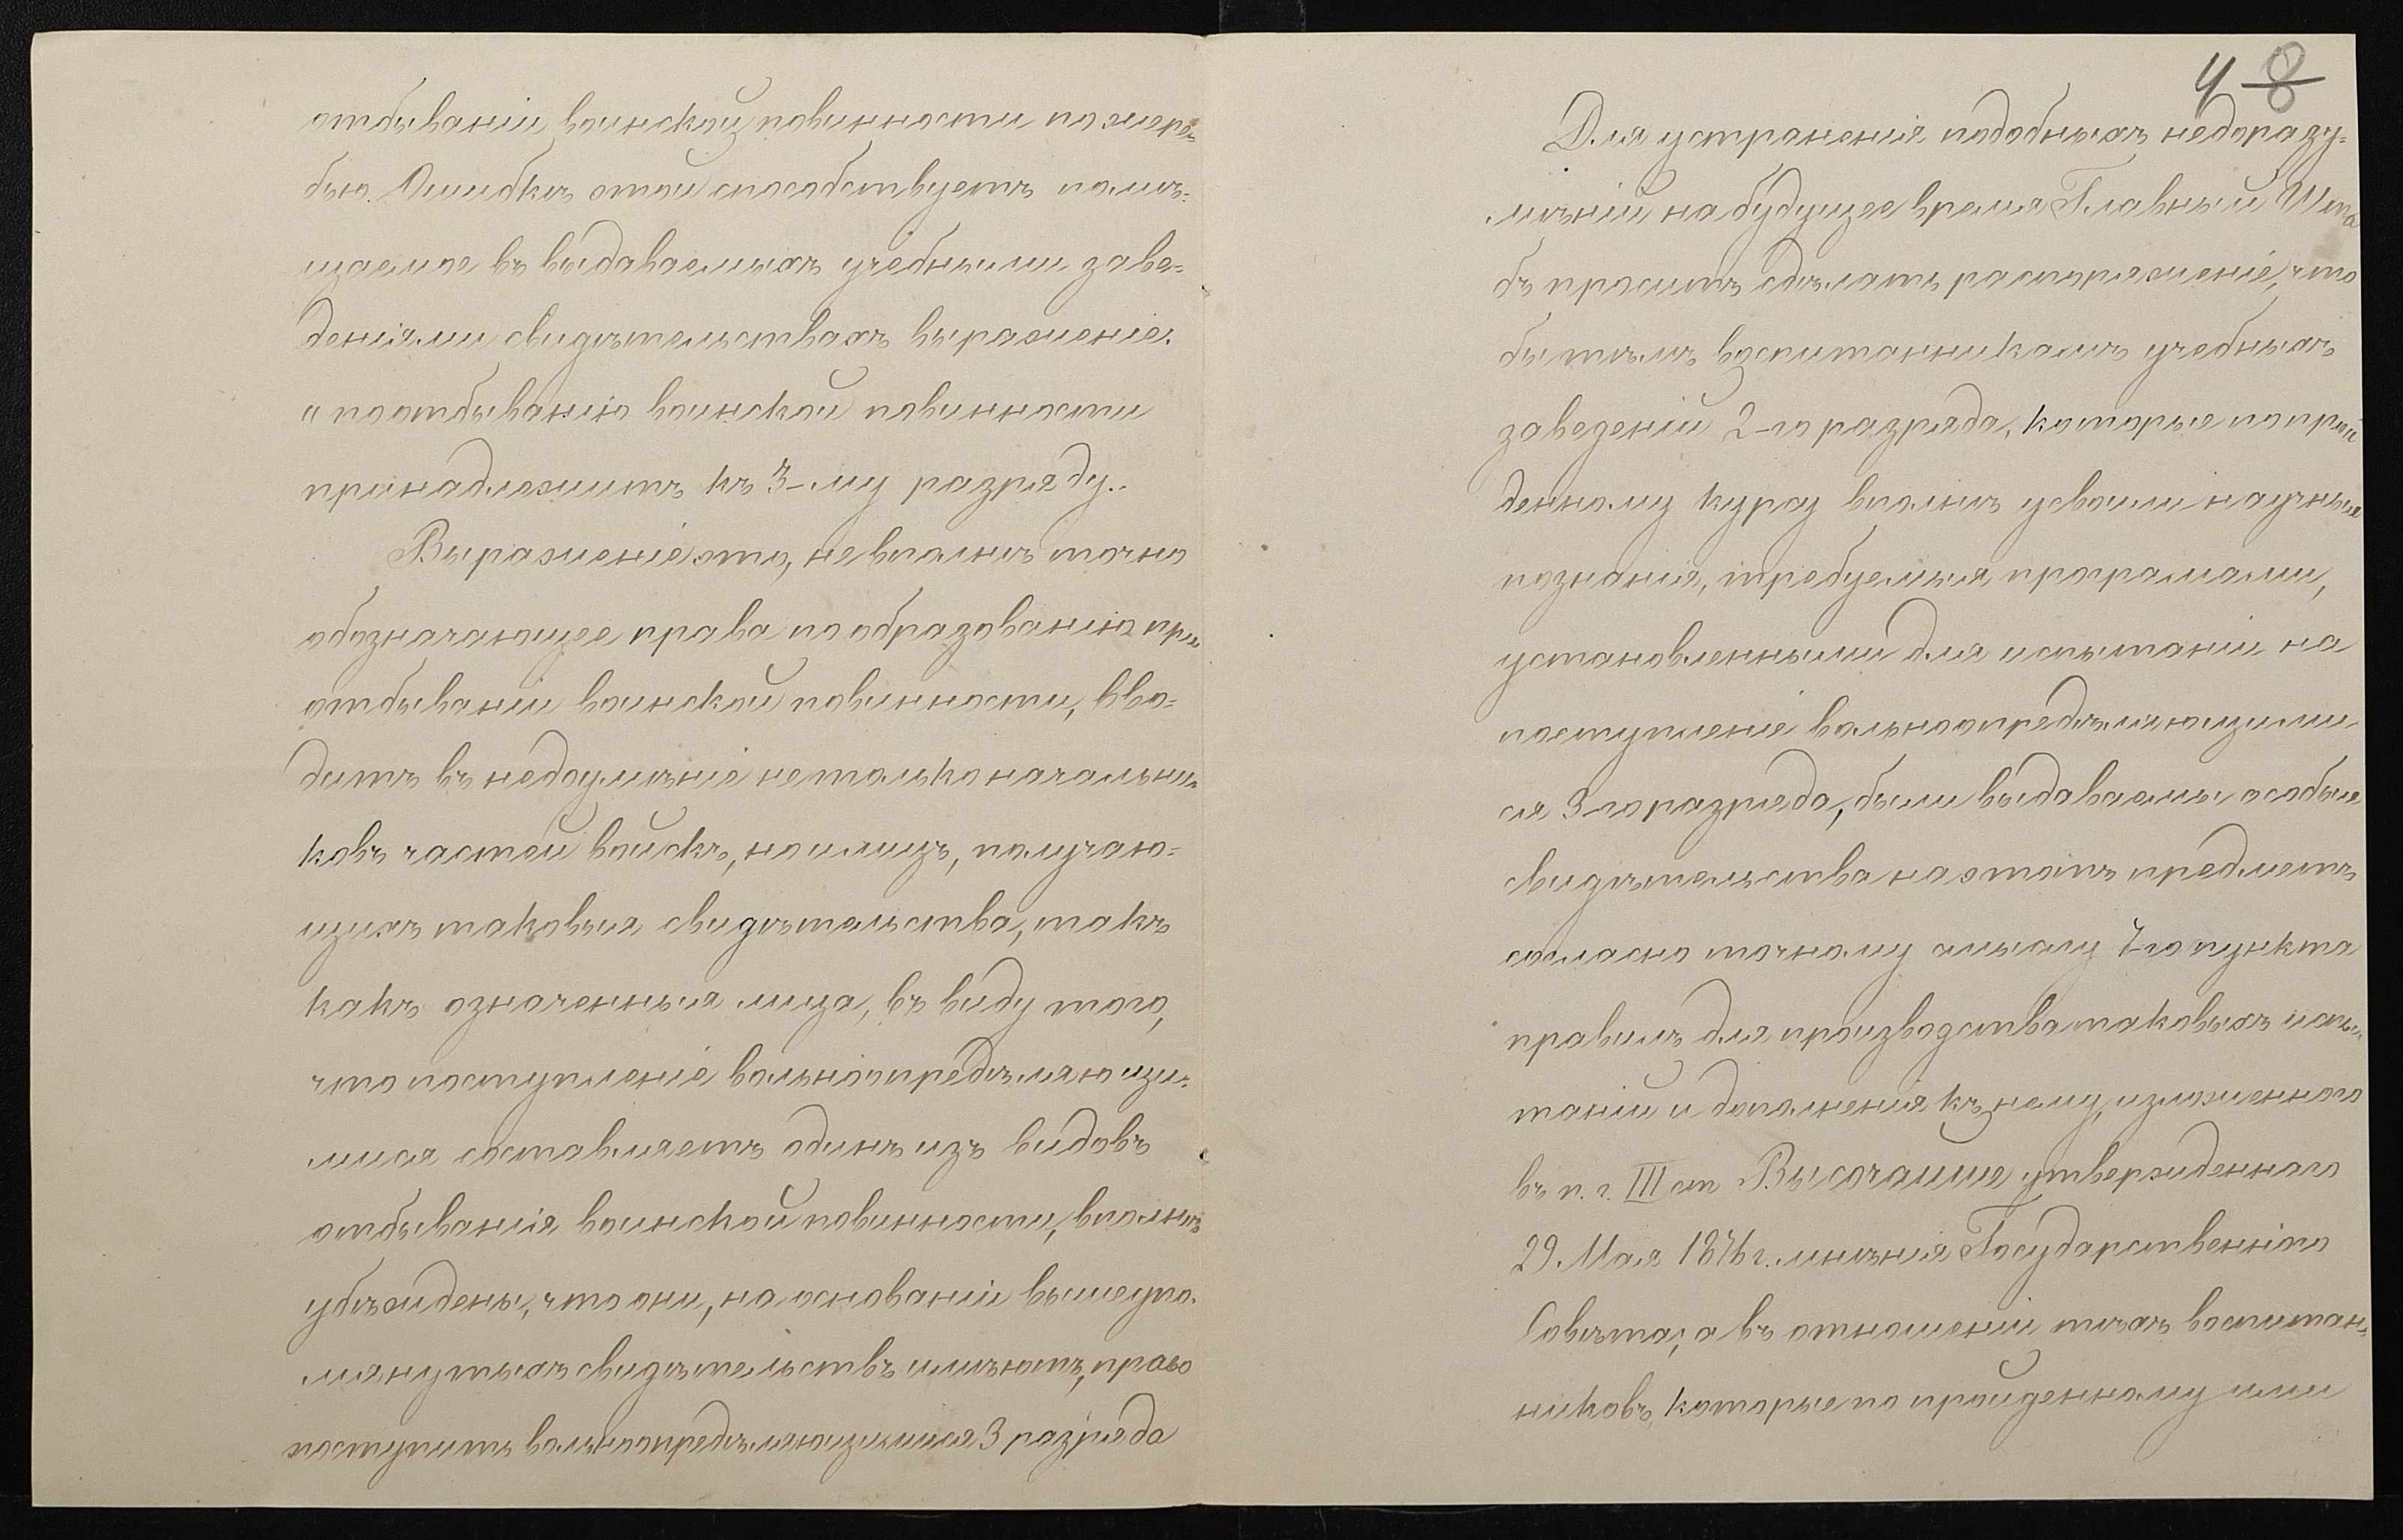 отбываніи воинской повинности по жере-
бью. Ошибкѣ этой способствуетъ помѣ-
щаемое въ выдаваемыхъ учебными заве-
деніями свидѣтельствахъ выраженіе:
"по отбыванію воинской повинности
принадлежитъ къ 3-му разряду".
Выраженіе это, не вполнѣ точно
обозначающее права по образованію при
отбываніи воинской повинности, вво-
дитъ въ недоумѣніе не только начальни-
ковъ частей войскъ, но и лицъ, получаю-
щихъ таковыя свидѣтельства, такъ
какъ означенныя лица, въ виду того,
что поступленіе вольноопредѣляющи-
мися составляетъ одинъ изъ видовъ
отбыванія воинской повинности, вполнѣ
убѣждены, что они, на основаніи вышеупо-
мянутыхъ свидѣтельствъ имѣютъ право
поступить вольноопредѣляющимися 3 разряда
4 8
Для устраненія подобныхъ недоразу-
мѣній на будущее время Главный Шта
бъ проситъ сдѣлать распоряженіе, что
бы тѣмъ воспитанникамъ учебныхъ
заведеній 2-го разряда, которые по прой
денному курсу вполнѣ усвоили научныя
познанія, требуемыя програмами,
установленными для испытаній на
поступленіе вольноопредѣляющими
ся 3-го разряда, были выдаваемы особыя
свидѣтельства на этотъ предметъ
согласно точному смыслу 7-го пункта
правилъ для производства таковыхъ испы-
таній и дополненія къ нему, изложеннаго
въ п. г. III ст Высочайше утвержденнаго
29 Мая 1876 г. мнѣнія Государственнаго
Совѣта; а въ отношеніи тѣхъ воспитан-
никовъ, которые по пройденному ими